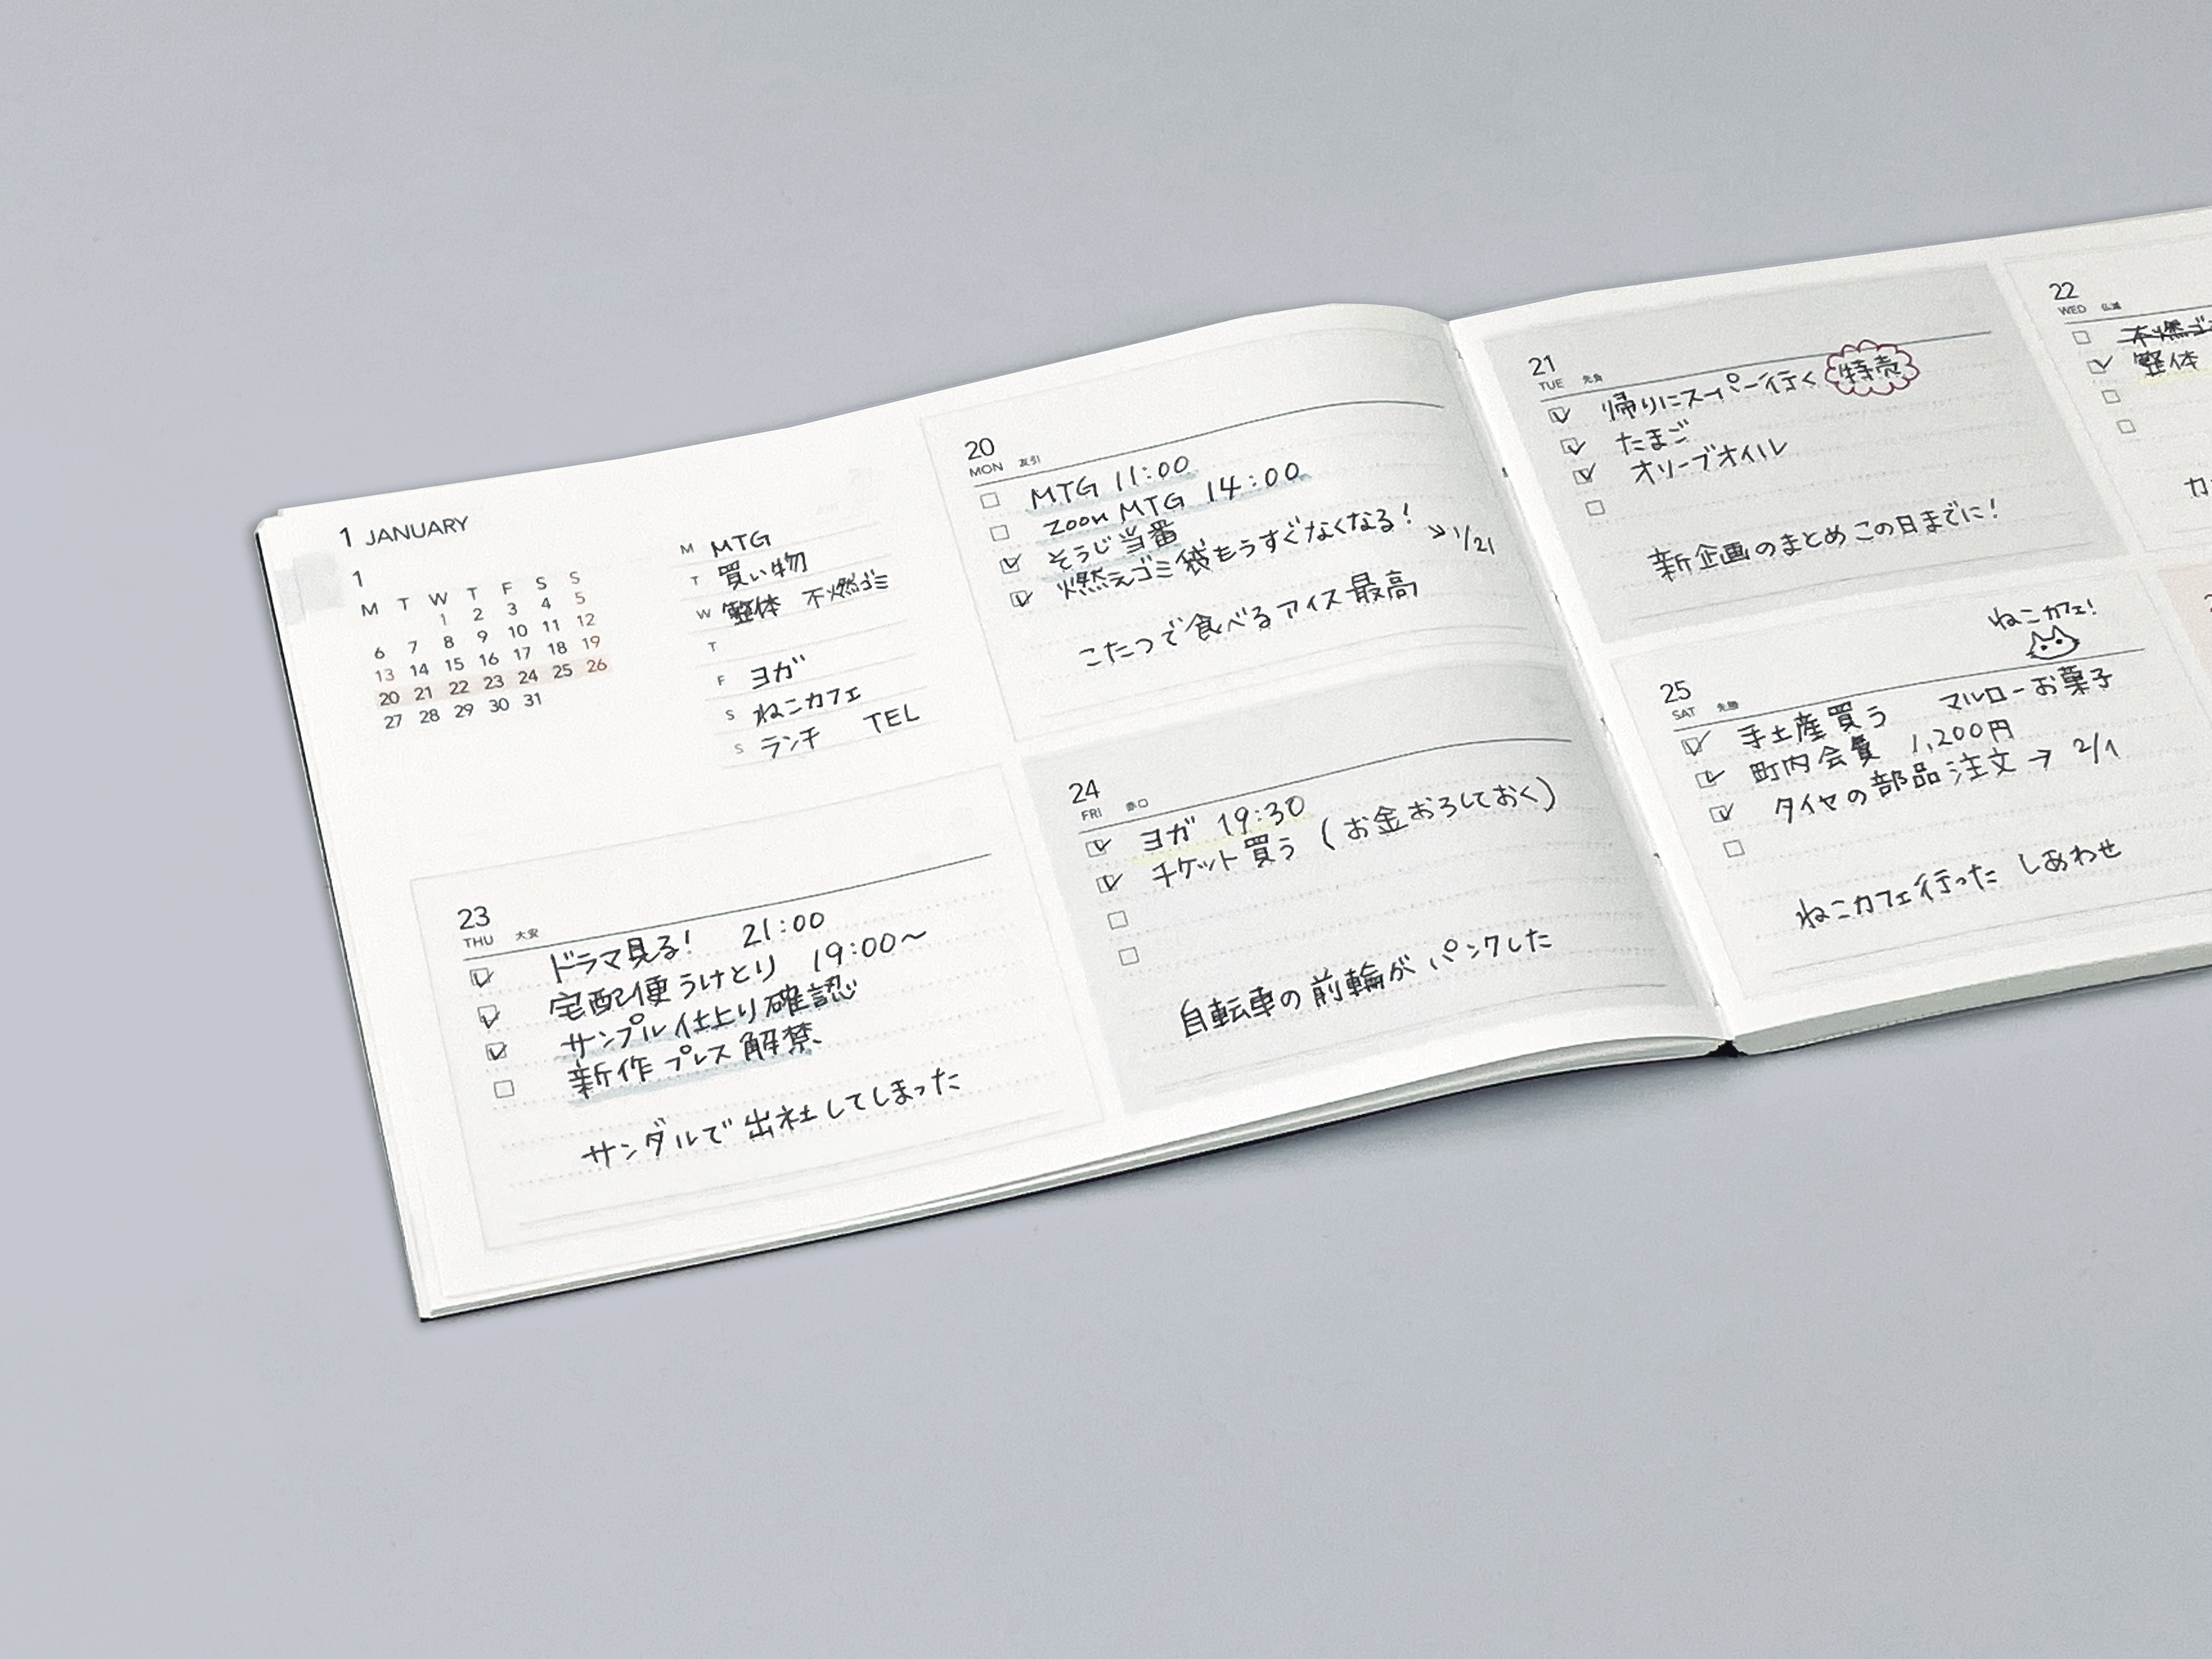 1 JANUARY
1
M T W T F S S
1 2 3 4 5
6 7 8 9 10 11 12
13 14 15 16 17 18 19
20 21 22 23 24 25 26
27 28 29 30 31
M MTG
T 買い物
W 整体 不燃ゴミ
T
F ヨガ
S ねこカフェ
S ランチ TEL
20
MON 友引
MTG 11:00
zoom MTG 14:00
そうじ当番
燃えゴミ袋もうすぐなくなる! → 1/21
こたつで食べるアイス最高
21
TUE 先負
帰りにスーパー行く 特売
たまご
オリーブオイル
新企画のまとめこの日までに!
22
WED 仏滅
不燃ゴ
整体
カ
23
THU 大安
ドラマ見る! 21:00
宅配便うけとり 19:00〜
サンプル仕上り確認
新作プレス解禁
サンダルで出社してしまった
24
FRI 赤口
ヨガ 19:30
チケット買う (お金おろしておく)
自転車の前輪がパンクした
ねこカフェ!
25
SAT 先勝
手土産買う マルローお菓子
町内会費 1,200円
タイヤの部品注文→ 2/1
ねこカフェ行った しあわせ